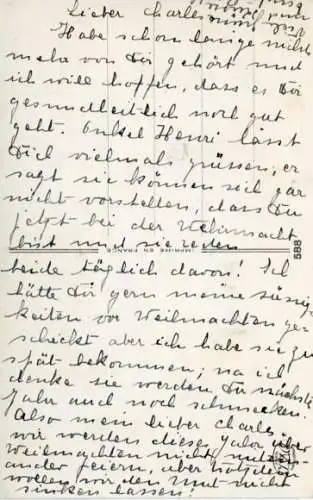 Lieber Charles
Habe schon lange nichts
mehr von Dir gehört und
ich will hoffen, dass es Dir
gesundheitlich noch gut
geht. Onkel Henri lässt
Dich vielmals grüssen, er
sagt sie können sich gar
nicht vorstellen, dass Du
jetzt bei der Wehrmacht
bist und sie reden
beide täglich davon! Ich
hätte Dir gern meine Süssig-
keiten vor Weihnachten ge-
schickt aber ich habe sie zu
spät bekommen; na ich
denke sie werden Dir nächstes
Jahr auch noch schmecken.
Also mein lieber Charles
wir werden dieses Jahr über
Weihnachten nicht mit
ander feiern, aber trotzdem
wollen wir den Mut nicht
sinken lassen!
588